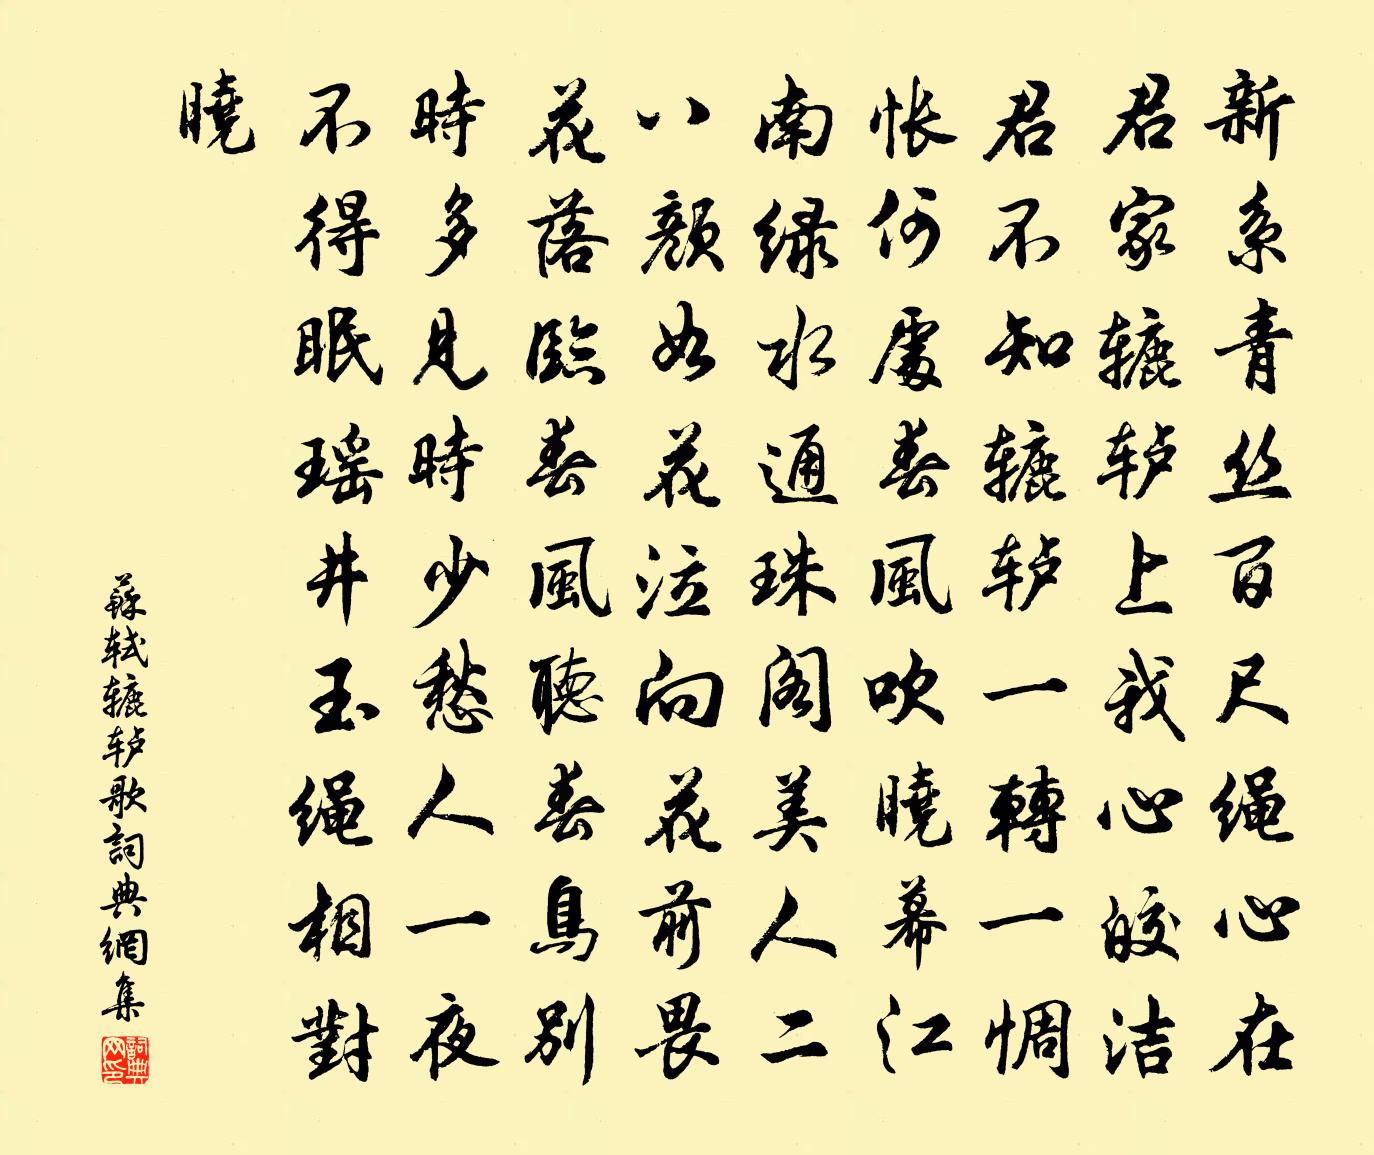 新系青丝百尺绳心在
君家辘轳上我心皎洁
君不知辘轳一轉一惆
怅何處春風吹曉幕江
南绿水通珠阁美人二
八顏如花泣向花前畏
花落臨春風聽春鳥别
時多見時少愁人一夜
不得眠瑶井玉绳相對
曉
蘇轼辘轳歌詞典網集
詞典网印